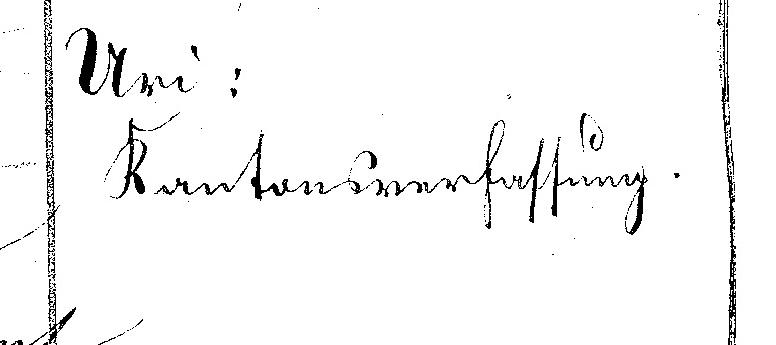 Uri:
Kantonsverfassung.